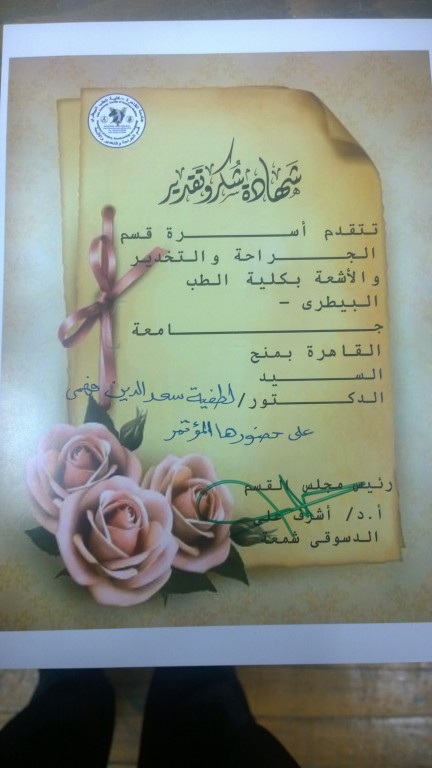 شهادة شكر وتقدير
تتقدم أسرة قسم
الجراحة والتخدير
والأشعة بكلية الطب
البيطرى -
جامعة
القاهرة بمنح
السيد
الدكتور/ لطفية سعد الدين فهمى
على حضورها المؤتمر
رئيس مجلس القسم
أ.د/ أشرف على
الدسوقى شمعة